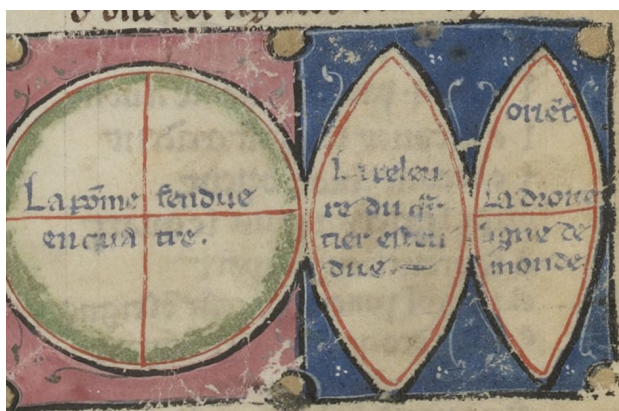 La põme fendue
en qua tre.
La peleu
re du q̃r
tier esten
due.
oriẽt
La droite
ligne de
monde